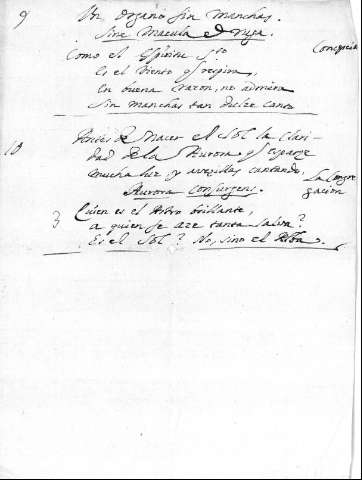 9 Un organo sin manchas.
Sine Macula & ruga.
Concepcio
Como el Espiritu Sto
Es el Viento q respira,
En buena razon, no admira
Sin manchas tan dulze canto
10 Antes de Nacer el Sol la clari-
dad de la Aurora q esparze
mucha luz y avecillas cantando,
Aurora consurgens.
La Congre
gacion
3 Quien es el Astro brillante,
a quien se aze tanta salva?
Es el Sol? No, sino el Alba.